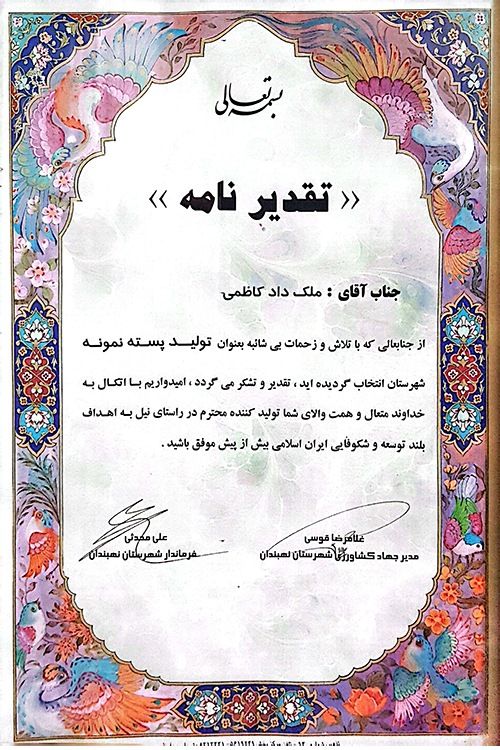 بسمه تعالی
« تقدیر نامه »
جناب آقای : ملک داد کاظمی
از جنابعالی که با تلاش و زحمات بی شائبه بعنوان تولید پسته نمونه
شهرستان انتخاب گردیده اید ، تقدیر و تشکر می گردد ، امیدواریم با اتکال به
خداوند متعال و همت والای شما تولید کننده محترم در راستای نیل به اهداف
بلند توسعه و شکوفایی ایران اسلامی بیش از پیش موفق باشید .
غلامرضا قوسی
مدیر جهاد کشاورزی شهرستان نهبندان
علی
فرماندار شهرستان نهبندان